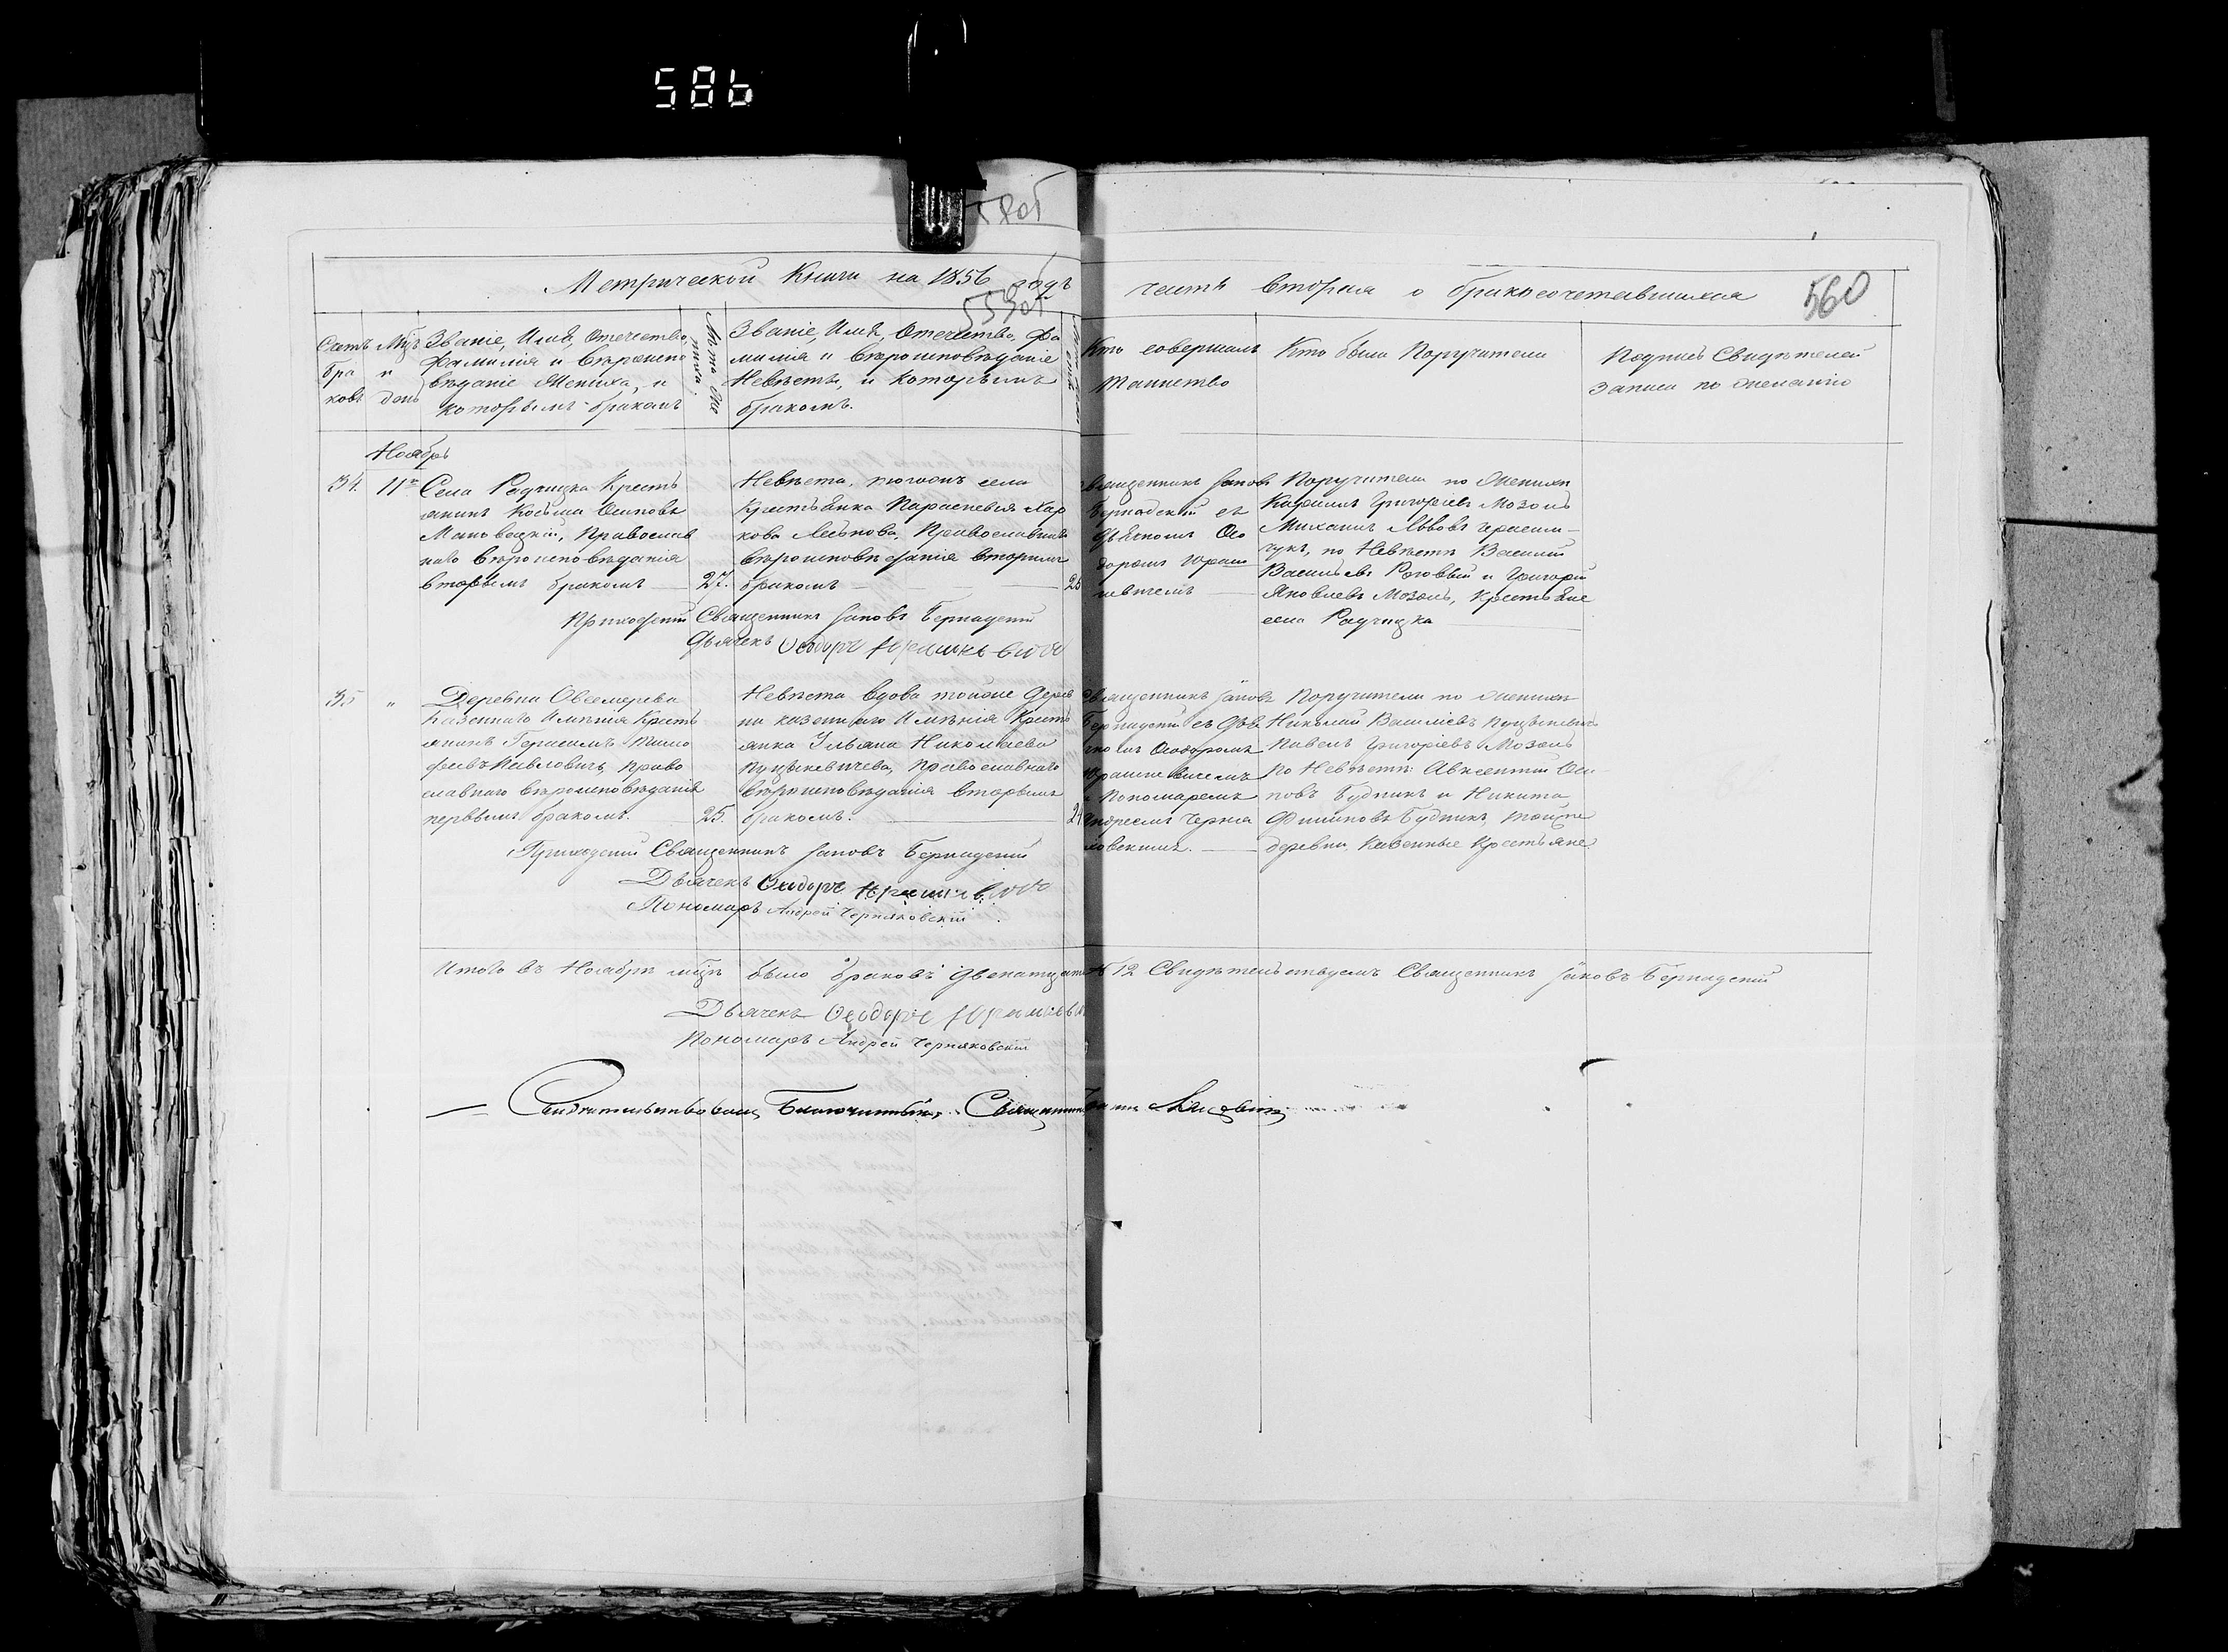 586
580б
Метрической Книги на 1856 годъ
559об
часть вторая о бракосочетавшихся
560
Счетъ бра ковъ
Мцъ и день
Званіе, Имя, Отечество,
Фамилія и Вѣроиспо
вѣданіе Жениха, и
которымъ бракомъ
Лѣта Же
ниха
Званіе, Имя, Отечество, Фа
милія и вѣроисповѣданіе
Невѣсты, и которымъ
бракомъ.
Кто совершалъ
таинство
Кто были Поручители
Подпись Свидѣтелей
записи по желанію
Ноябрь
34.
11го
Села Радчицка Кресть
янинъ Косьма Осиповъ
Маковецкій, Православ
наго вѣроисповѣданія
вторымъ бракомъ
27.
Невѣста, тогожъ села
Крестьянка Параскевія Кар
пова Православнаго
вѣроисповѣданія вторымъ
бракомъ
25
Священникъ Іаковъ
Бернадскій съ
Дьячкомъ Ѳео
доромъ Юраш
кевичемъ
Поручители по Женихѣ
Григоріевъ Мозоль
Михаилъ Львовъ Гарасим-
чукъ, по Невѣстѣ Василій
Васильевъ Роговый и Григорій
Яковлевъ Мозоль, Крестьяне
села Радчицка
Приходскій Священникъ Іаковъ Бернадскій
Дьячекъ Ѳеодоръ Юрашкевичъ
35
"
Деревни Овсемерева
Казеннаго Имѣнія Кресть
янинъ Герасимъ Тимо
феевъ Павловичъ, Право
славнаго вѣроисповѣданія
первымъ бракомъ.
25.
Невѣста вдова тойже дерев
ни казеннаго Имѣнія Кресть
янка Ульяна Николаева
Пуцыкевичева, православнаго
вѣроисповѣданія вторымъ
бракомъ.
24
Священникъ Іаковъ
Бернадскій съ Дья
чкомъ Ѳеодоромъ
Юрашкевичемъ
и Пономаремъ
Андреемъ Черня
ковскимъ.
Поручители по женихѣ
Николай Василіевъ
Павелъ Григоріевъ Мозоль
По Невѣстѣ Авксентій Оси
повъ Будникъ и Никита
Филиповъ Будникъ, тойже
деревни, Казенные Крестьяне.
Приходскій Священникъ Іаковъ Бернадскій
Дьячекъ Ѳеодоръ Юрашкевичъ
Пономарь Андрей Черняковскій
Итого въ Ноябрѣ мцѣ было браковъ двенатцать 12 Свидѣтельствуемъ Священникъ Іаковъ Бернадскій
Дьячекъ Ѳеодоръ Юрашкевичъ
Пономарь Андрей Черняковскій
Свидѣтельствовалъ Благочинный, Священникъ